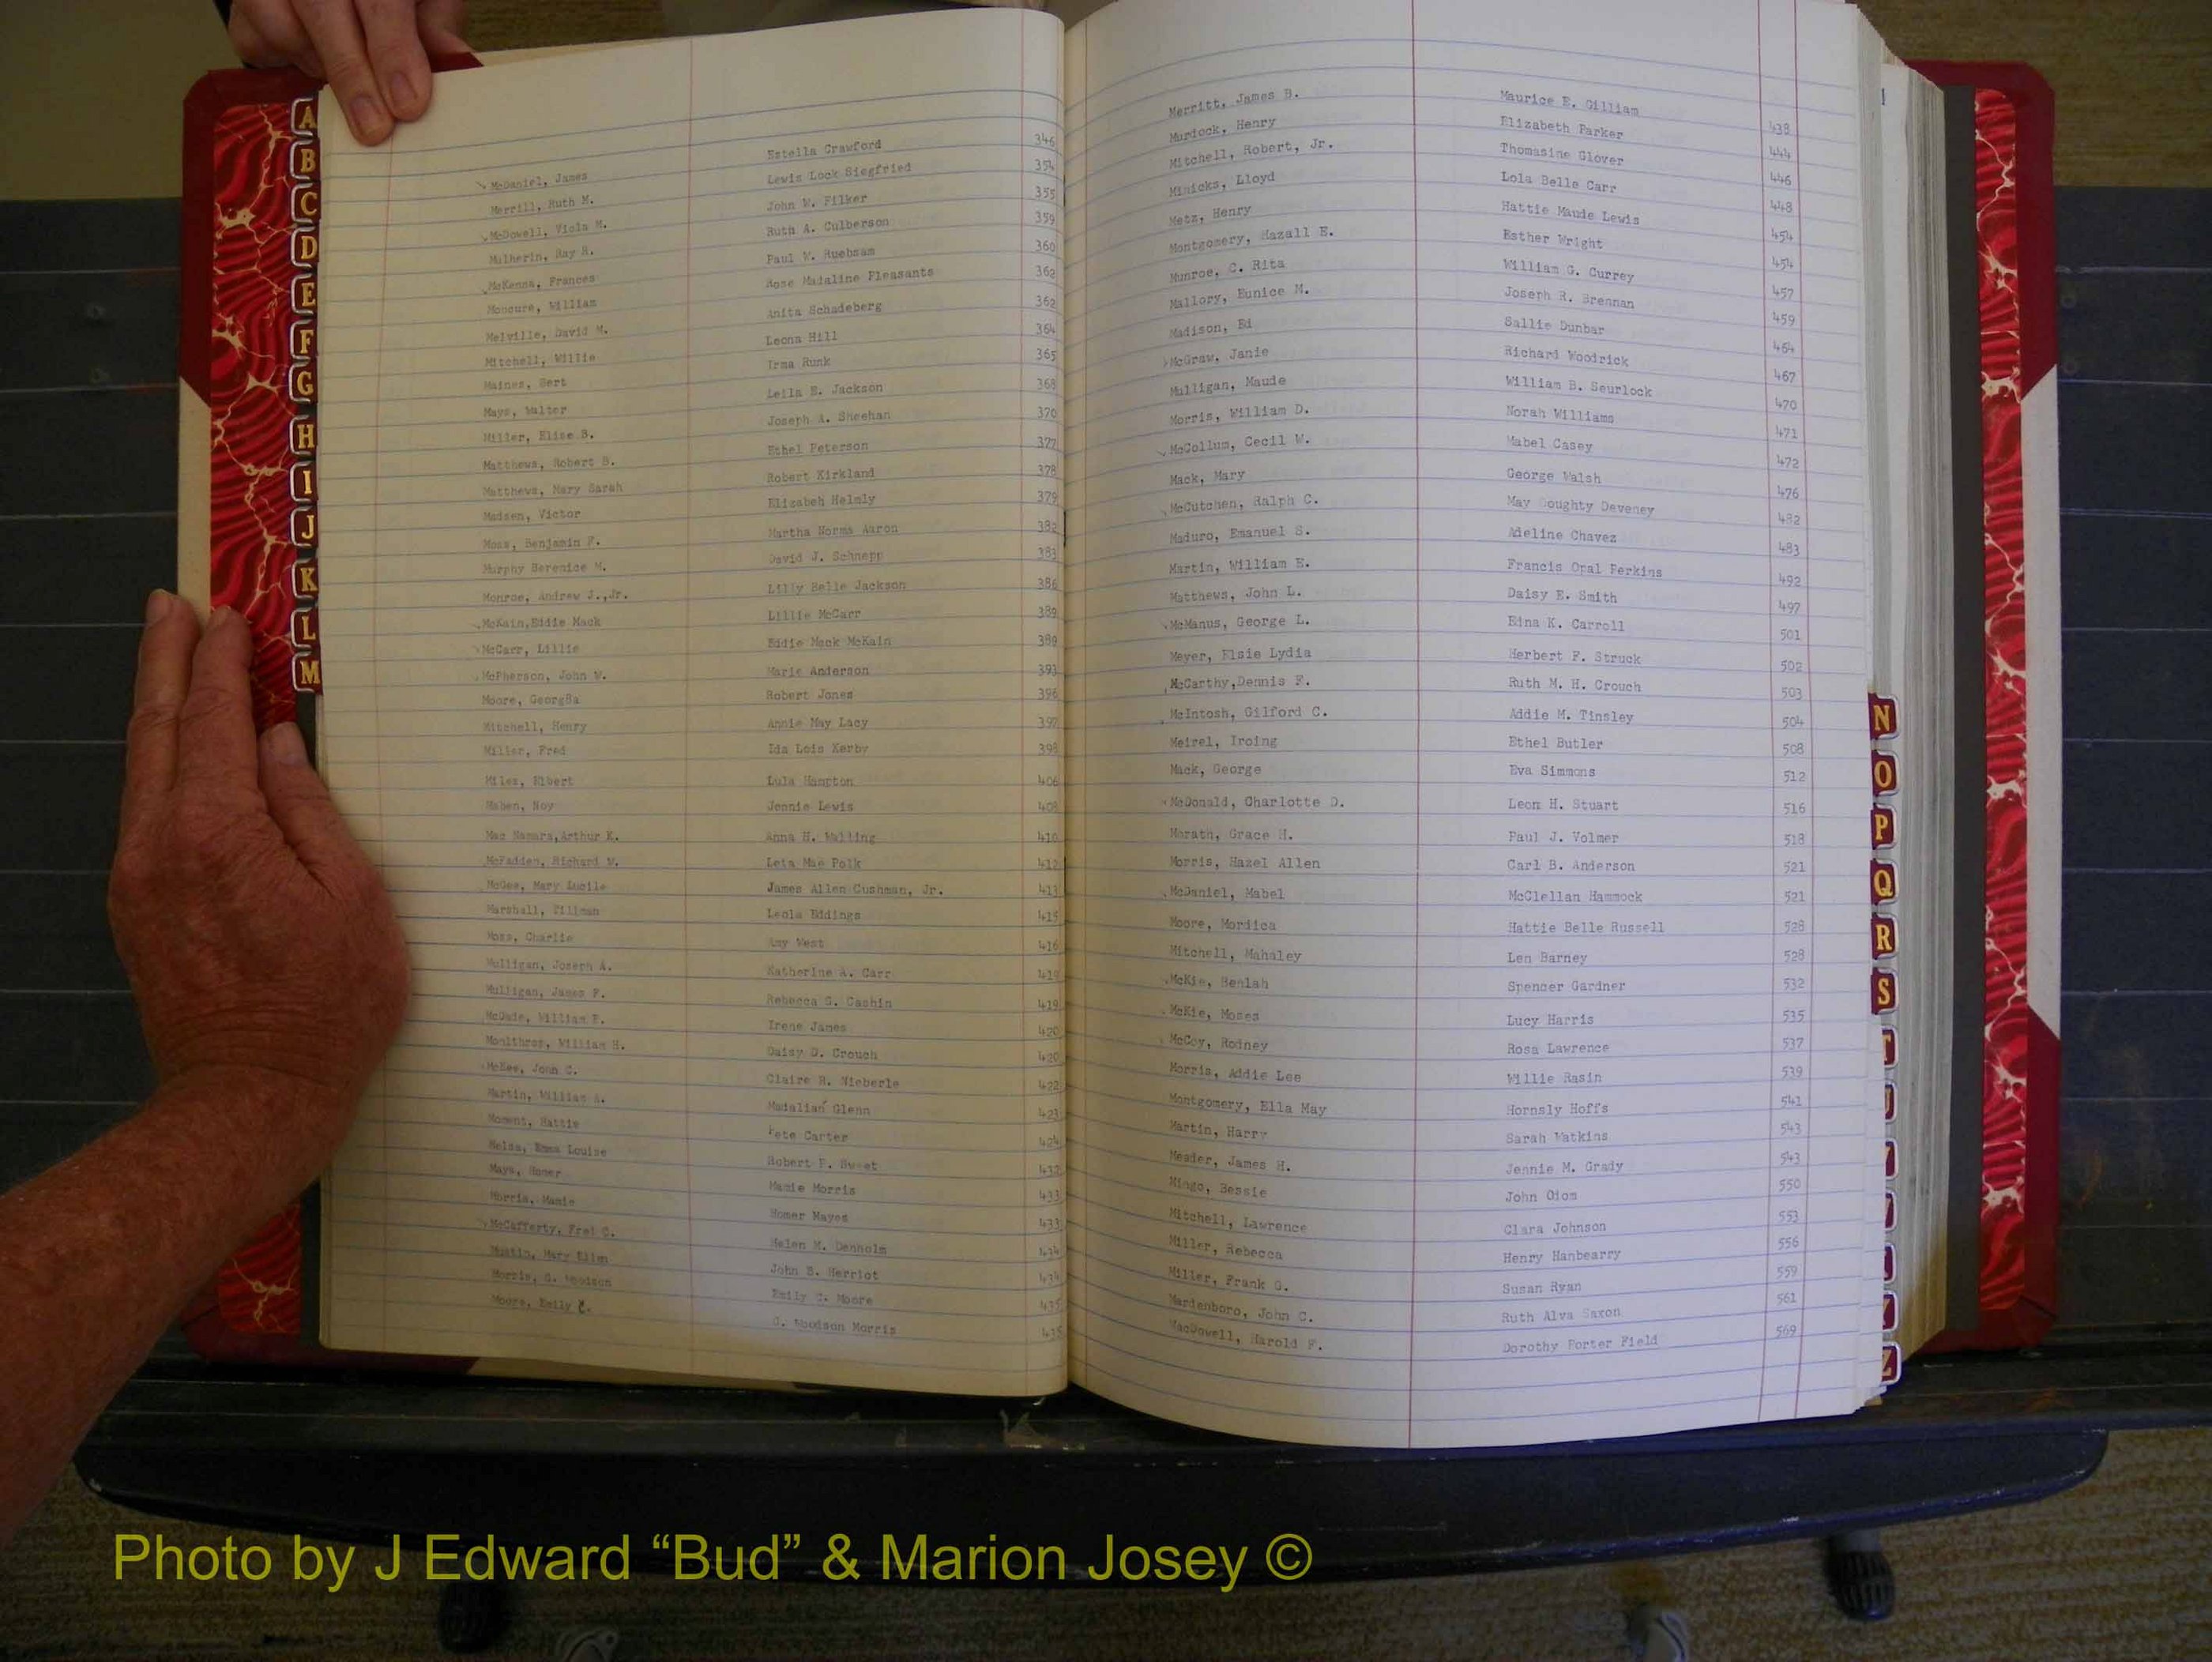 A
B
C
D
E
F
G
H
I
J
K
L
M
McDaniel, James Estella Crawford 346
Merrill, Ruth M. Lewis Lock Siegfried 354
McDowell, Viola M. John W. Filker 355
Mulherin, Ray R. Ruth A. Culberson 359
McKenna, Frances Paul W. Ruebsam 360
Moncure, William Rose Madaline Pleasants 362
Melville, David M. Anita Schadeberg 362
Mitchell, Willie Leona Hill 364
Maines, Bert Irma Runk 365
Mays, Walter Leila E. Jackson 368
Miller, Elise B. Joseph A. Sheehan 370
Matthews, Robert B. Ethel Peterson 377
Matthews, Mary Sarah Robert Kirkland 378
Madsen, Victor Elizabeh Helmly 379
Moss, Benjamin F. Martha Norma Aaron 382
Murphy Berenice M. David J. Schnepp 383
Monroe, Andrew J.,Jr. Lilly Belle Jackson 386
McKain,Eddie Mack Lillie McCarr 389
McCarr, Lillie Eddie Mack McKain 389
McPherson, John W. Marie Anderson 393
Moore, Robert Jones 396
Mitchell, Henry Annie May Lacy 397
Miller, Fred Ida Lois Kerby 398
Miles, Elbert Lula Hampton 406
Maben, Roy Jennie Lewis 408
Mac Namara,Arthur K. Anna H. Walling 410
McFadden, Richard W. Leia Mae Polk 412
McGee, Mary Lucile James Allen Cushman, Jr. 413
Marshall, Tillman Leola Eddings 415
Moss, Charlie Amy West 416
Mulligan, Joseph A. Katherine A. Carr 419
Mulligan, James F. Rebecca G. Cashin 419
McDade, William E. Irene James 420
Moulthrop, William H. Daisy D. Crouch 420
McKee, John C. Claire R. Nieberle 422
Martin, William A. Madalian Glenn 423
Moment, Hattie Pete Carter 424
Emma Louise Robert F. 432
Mays, Homer Mamie Morris 433
Morris, Mamie Homer Mayes 433
McCafferty, Fred C. Helen M. Denholm 434
Mustin, Mary Elim John B. Herriot 434
Morris, G. Woodson Emily C. Moore 435
Moore, Emily C. G. Woodson Morris 435
Merritt, James B. Maurice E. Gilliam 438
Murdock, Henry Elizabeth Parker 444
Mitchell, Robert, Jr. Thomasine Glover 446
Minicks, Lloyd Lola Belle Carr 448
Metz, Henry Hattie Maude Lewis 454
Montgomery, Hazall E. Esther Wright 454
Munroe, C. Rita William G. Currey 457
Mallory, Eunice M. Joseph R. Brennan 459
Madison, Ed Sallie Dunbar 464
McGraw, Janie Richard Woodrick 467
Mulligan, Maude William B. Seurlock 470
Morris, William D. Norah Williams 471
McCollum, Cecil W. Mabel Casey 472
Mack, Mary George Walsh 476
McCutchen, Ralph C. May Doughty Deveney 482
Maduro, Emanuel S. Adeline Chavez 483
Martin, William E. Francis Opal Perkins 492
Matthews, John L. Daisy E. Smith 497
McManus, George L. Eina K. Carroll 501
Meyer, Elsie Lydia Herbert F. Struck 502
McCarthy,Dennis F. Ruth M. H. Crouch 503
McIntosh, Gilford C. Addie M. Tinsley 504
Meirel, Iroing Ethel Butler 508
Mack, George Eva Simmons 512
McDonald, Charlotte D. Leon H. Stuart 516
Morath, Grace H. Paul J. Volmer 518
Morris, Hazel Allen Carl B. Anderson 521
McDaniel, Mabel McClellan Hammock 521
Moore, Mordica Hattie Belle Russell 528
Mitchell, Mahaley Len Barney 528
McKie, Beulah Spencer Gardner 532
McKie, Moses Lucy Harris 535
McCoy, Rodney Rosa Lawrence 537
Morris, Addie Lee Willie Rasin 539
Montgomery, Ella May Hornsly Hoffs 541
Martin, Harry Sarah Watkins 543
Meader, James H. Jennie M. Grady 543
Mingo, Bessie John Odom 550
Mitchell, Lawrence Clara Johnson 553
Miller, Rebecca Henry Hanbearry 556
Miller, Frank G. Susan Ryan 559
Mardenboro, John C. Ruth Alva Saxon 561
MacDowell, Harold F. Dorothy Porter Field 569
N
O
P
Q
R
S
T
Z
Photo by J Edward “Bud” & Marion Josey ©